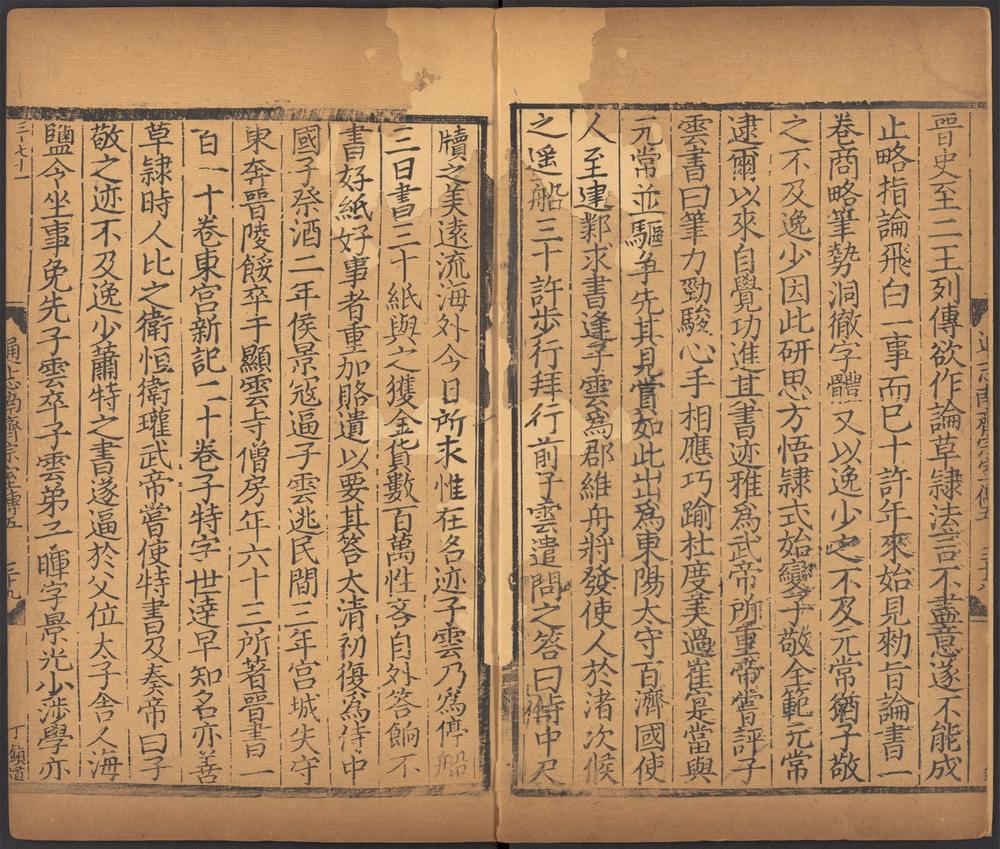 晉史至二王列傳欲作論草隷法言不盡意遂不能成
止略指論飛白一事而巳十許年來始見勑旨論書一
卷商略筆勢洞徹字體又以逸少之不及元常猶子敬
之不及逸少因此研思方悟隷式始變子敬全範元常
逮爾以來自覺功進其書迹雅爲武帝所重帝嘗評子
雲書曰筆力勁駿心手相應巧踰杜度美過崔寔當與
元常並驅争先其見賞如此出爲東陽太守百濟國使
人至建鄴求書逢子雲爲郡維舟將發使人於渚次候
之遥船三十許步行拜行前子雲遣問之答曰侍中尺
牘之美遠流海外今日所求惟在名迹子雲乃爲停船
三日書三十紙與之獲金貨數百萬性吝自外答餉不
書好紙好事者重加賂遺以要其答太清初復爲侍中
國子祭酒二年侯景寇逼子雲逃民間三年宮城失守
東奔晉陵餒卒于顯雲寺僧房年六十三所著晉書一
百一十卷東宮新記二十卷子特字世逹早知名亦善
草隷時人比之衛恒衛瓘武帝嘗使特書及奏帝曰子
敬之迹不及逸少蕭特之書遂逼於父位太子舍人海
鹽令坐事免先子雲卒子雲弟子暉字景光少涉學亦
三七十一
通志南齊宗室傳五
三九
丁鎮道